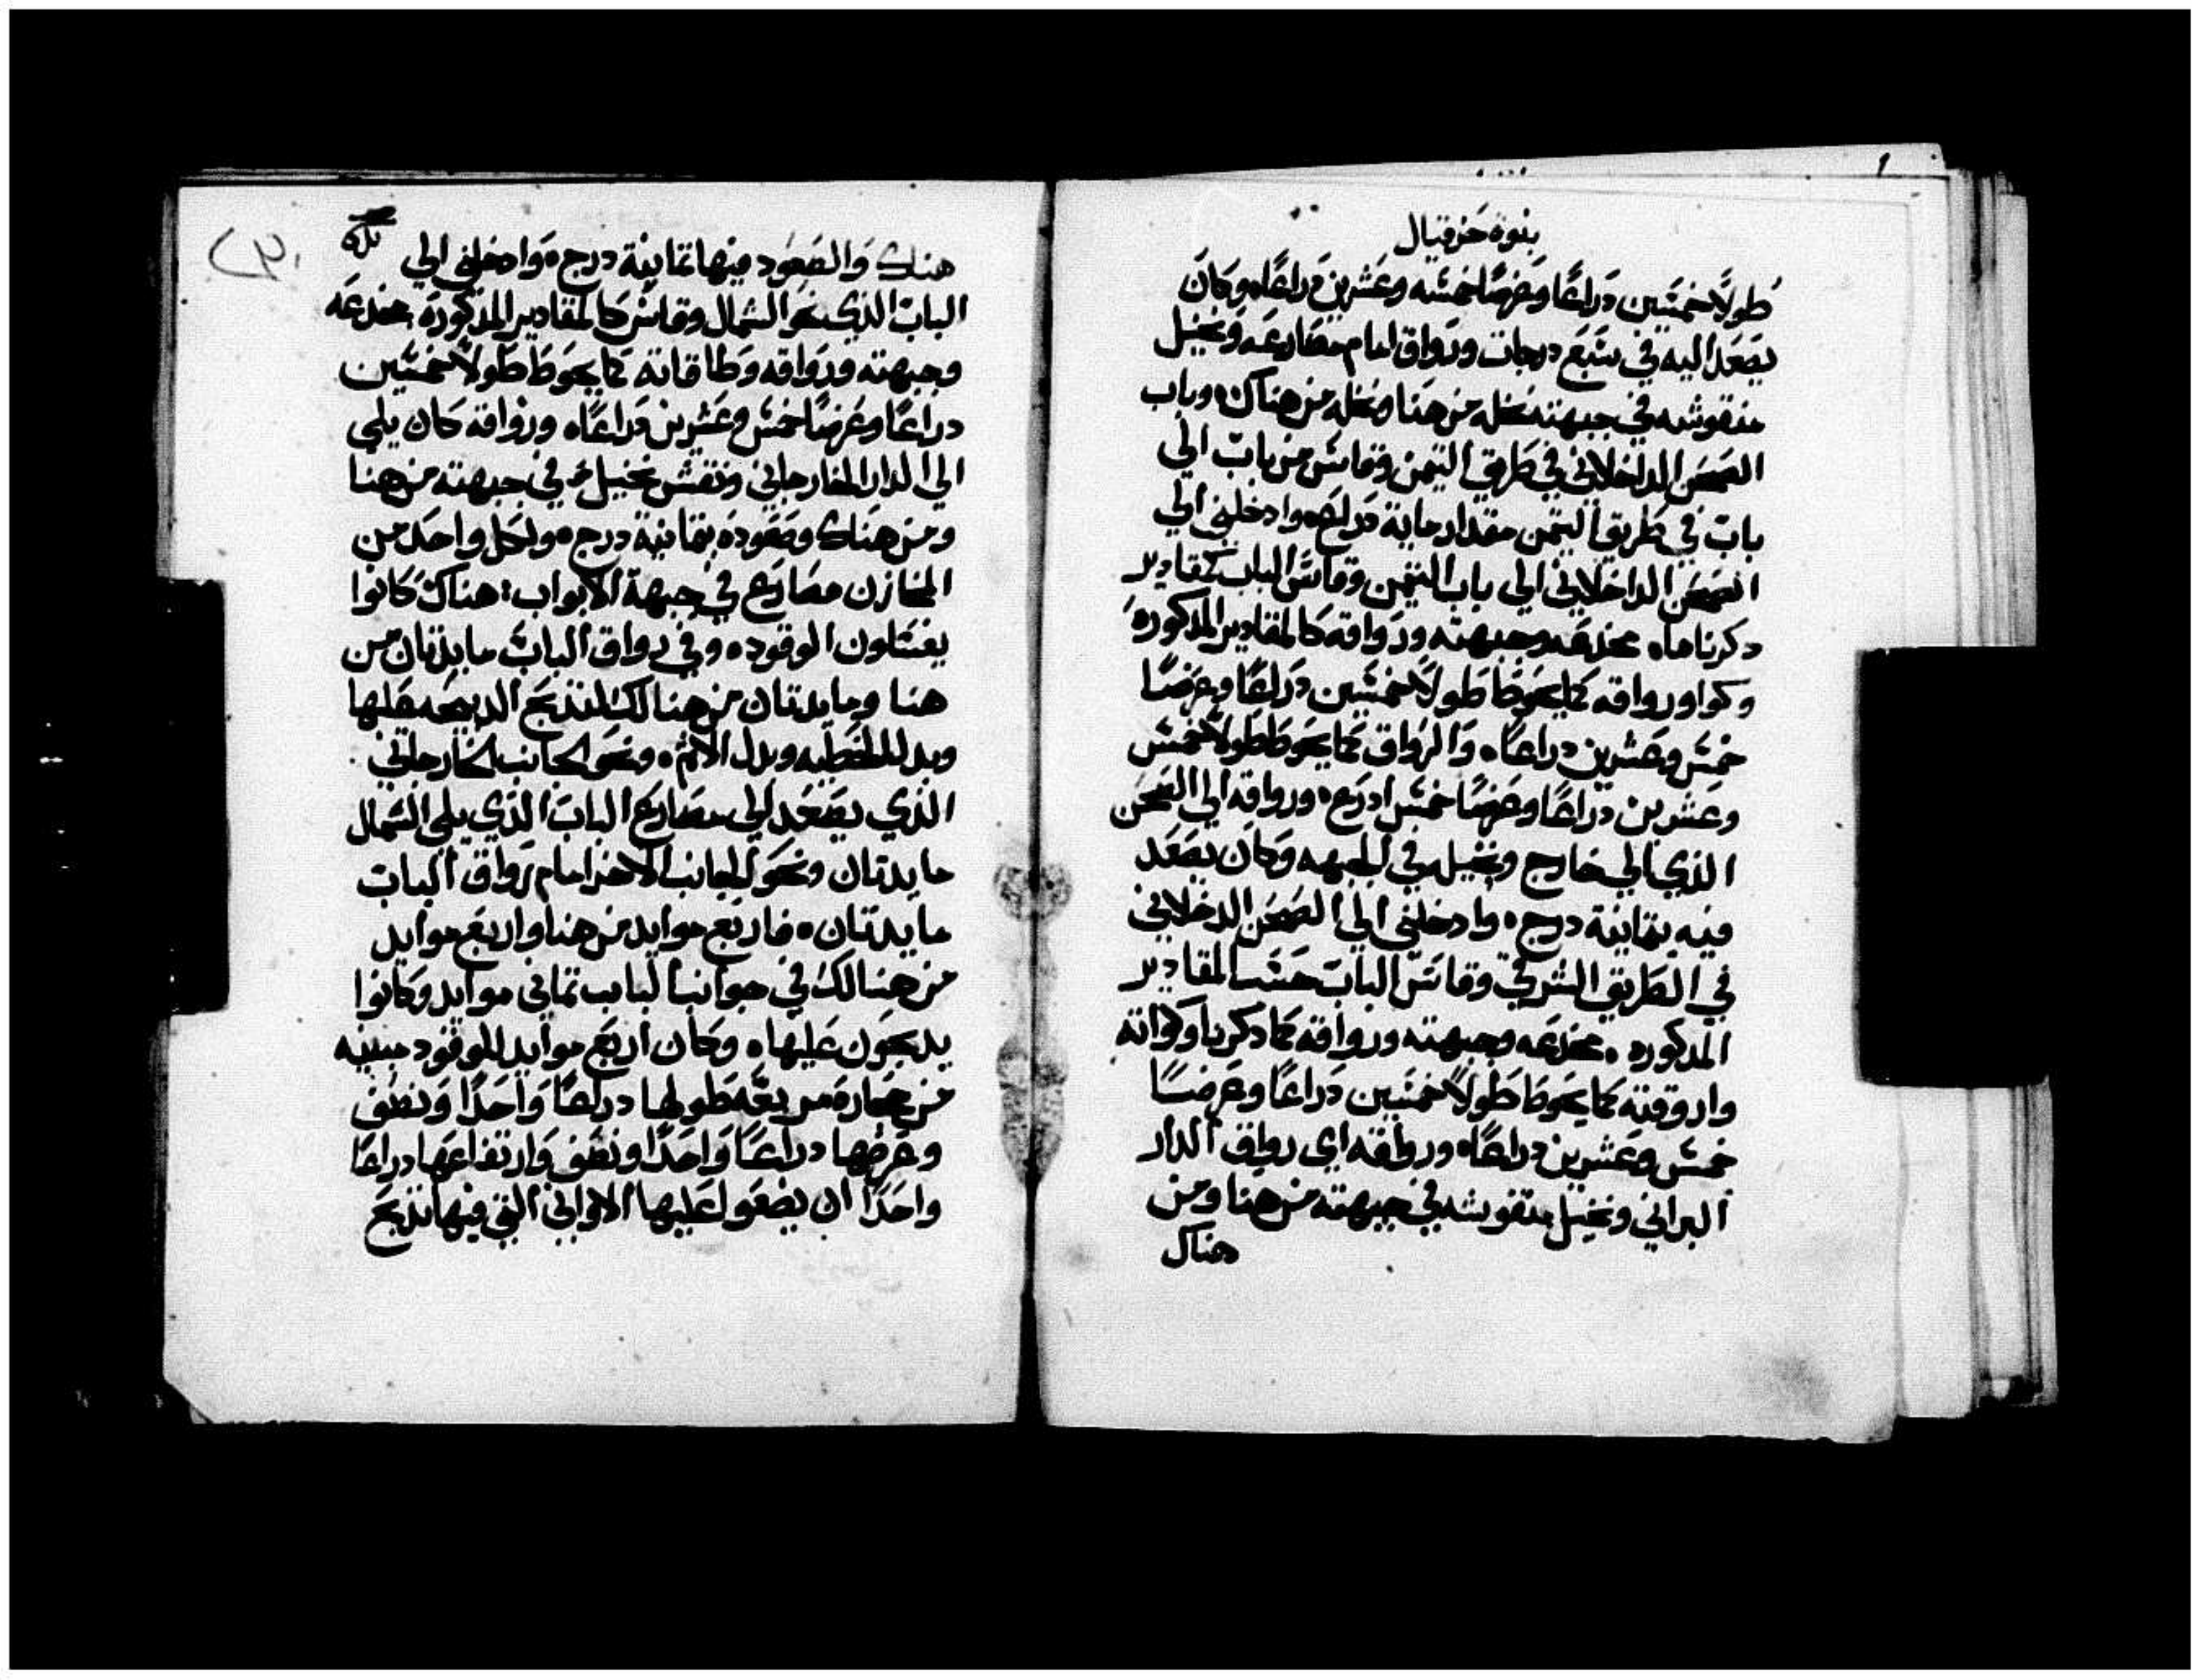 بنوة حزقيال
طولاً خمسين دراعًا وعرضًا خمسه وعشرين دراعًا، وكان
يصعد اليه في سبع درجات ورواق امام مصارعه ونخيل
منقوشه في جبهته نخله من هنا ونخله من هناك، وباب
الصحن الداخلاني في طريق التيمن وقاس من باب الي
باب في طريق التيمن مقدار ماية دراع، وادخلني الي
الصحن الداخلاني الي باب التيمن وقاس الباب كمقادير
دكرناها، مخدعه وجبهته ورواقه كالمقادير المدكوره
وكوا ورواقه كما يحوط طولاً خمسين دراعًا وعرضًا
خمس وعشرين دراعًا، والرواق كما يحوط طولاً خمس
وعشرين دراعًا وعرضًا خمس ادرع، ورواقه الي الصحن
الذي الي خارج ونخيله في الجبهه وكان يصعد
فيه بثمانية درج، وادخلني الي الصحن الدخلاني
في الطريق الشرقي وقاس الباب حسب المقادير
المدكوره، مخدعه وجبهته ورواقه كما دكرنا وكواته
واروقته كما يحوط طولاً خمسين دراعًا وعرضًا
خمس وعشرين دراعًا، ورواقه اي رواق الدار
البراني ونخيل منقوشه في جبهته من هنا ومن
هناك
هناك والصعود فيها ثمانية درج، وادخلني الي
الباب الذي نحو الشمال وقاس كالمقادير المذكورة، مخدعه
وجبهته ورواقه وطاقاته كما يحوط طولاً خمسين
دراعًا وعرضًا خمس وعشرين دراعًا، ورواقه كان يلي
الي الدار الخارجاني ونقش نخيل في جبهته من هنا
ومن هناك وصعوده بثمانية درج، ولكل واحد من
المخازن مصارع في جبهة الابواب، هناك كانوا
يغسلون الوقوده، وفي رواق الباب مايدتان من
هنا ومايدتان من هنالك لتذبح الذبيحه عليها
وبدل الخطيه وبدل الاثم، ونحو الجانب الخارجاني
الذي يصعد الي مصارع الباب الذي يلي الشمال
مايدتان ونحو الجانب الاخر امام رواق الباب
مايدتان، فاربع موايد من هنا واربع موايد
من هنالك في جوانب الباب ثماني موايد وكانوا
يدبحون عليها، وكان اربع موايد للوقود مبنيه
من حجارة مربعه طولها دراعًا واحدًا ونصف
وعرضها دراعًا واحدًا ونصف وارتفاعها دراعًا
واحدًا ان يضعوا عليها الاواني التي فيها تذبح